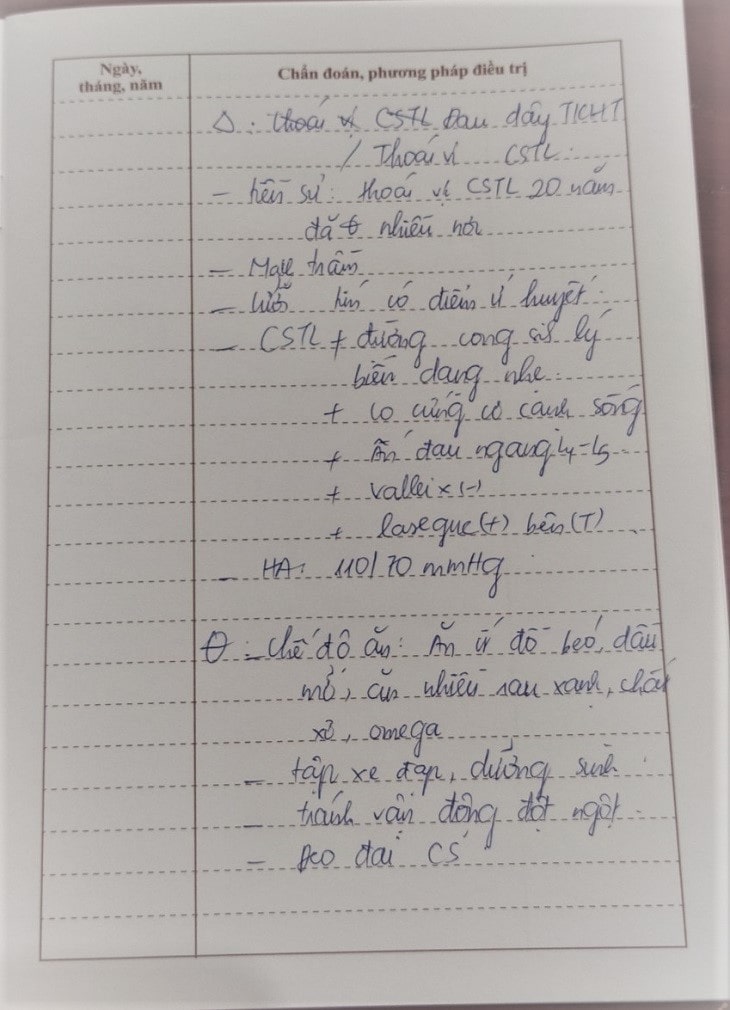 Ngày,
tháng, năm
Chẩn đoán, phương pháp điều trị
Δ: thoái vị CSTL Đau dây TKHT
/ Thoái vị CSTL.
- tiền sử: thoái vị CSTL 20 năm
đã θ nhiều nơi
- Mạch trầm
- lưỡi tím có điểm ứ huyết.
- CSTL + đường cong sih lý
biến dạng nhẹ.
+ co cứng cơ cạnh sống
+ Ấn đau ngang L4-L5
+ valleix (-)
+ laseque (+) bên (T)
- HA: 110/70 mmHg
θ - chế độ ăn: Ăn ít đồ béo, dầu
mỡ, ăn nhiều rau xanh, chất
xơ, omega
- tập xe đạp, dưỡng sinh
- tránh vận động đột ngột.
- Đeo đai CS